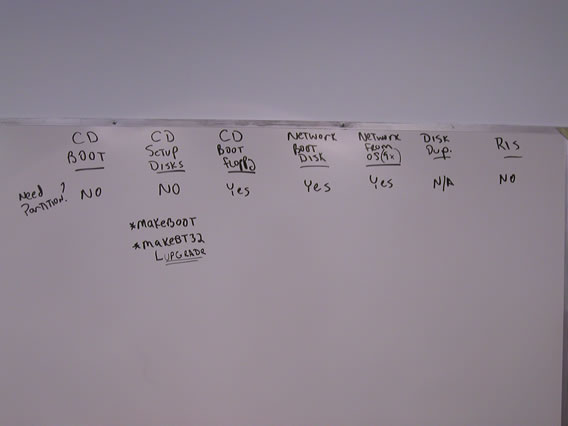 CD BOOT
CD SETUP DISKS
CD BOOT Floppy
NETWORK BOOT DISK
NETWORK From OS(9x)
DISK Dup.
RIS
Need Partition? NO NO Yes Yes Yes N/A NO
*MAKEBOOT
*MAKEBT32
UPGRADE